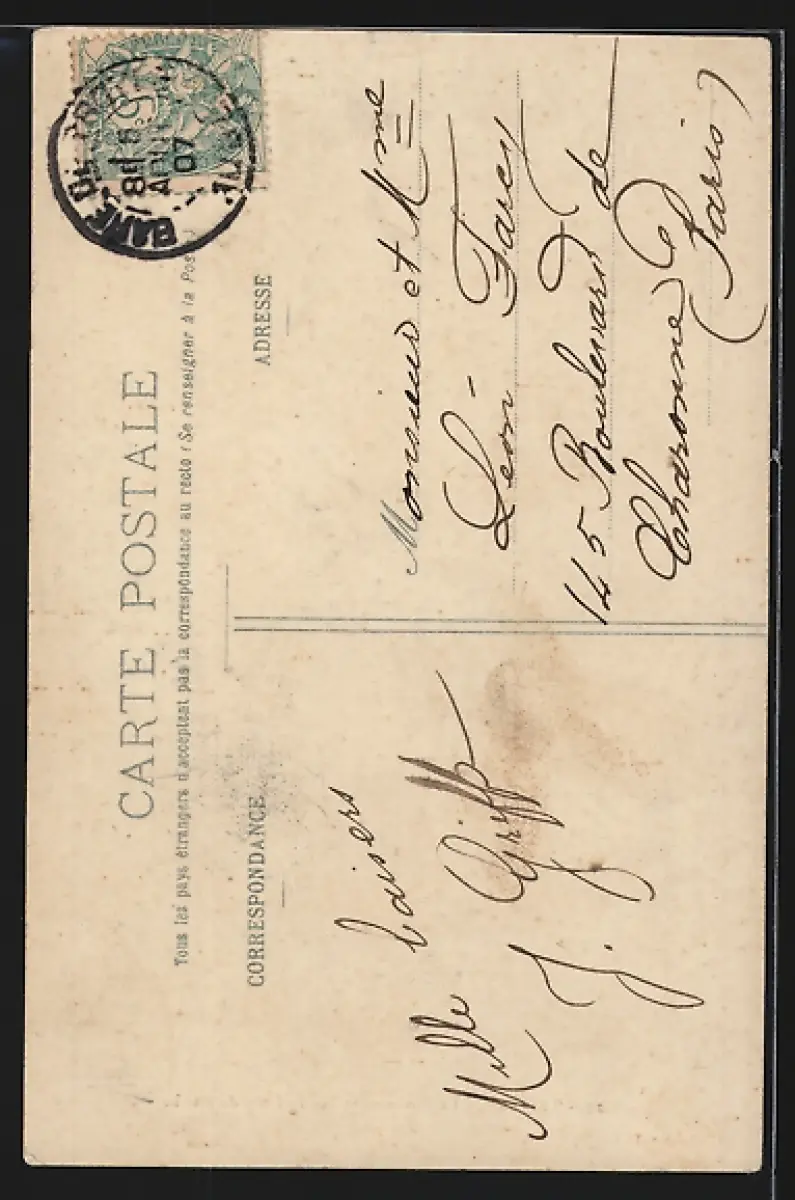 CARTE POSTALE
Tous les pays étrangers n'acceptent pas la correspondance au recto (Se renseigner à la Poste)
CORRESPONDANCE
Mille baisers
J. Griff
ADRESSE
Monsieur et Mme
Léon Farcy
145 Boulevard de
Charonne
(Paris)
07